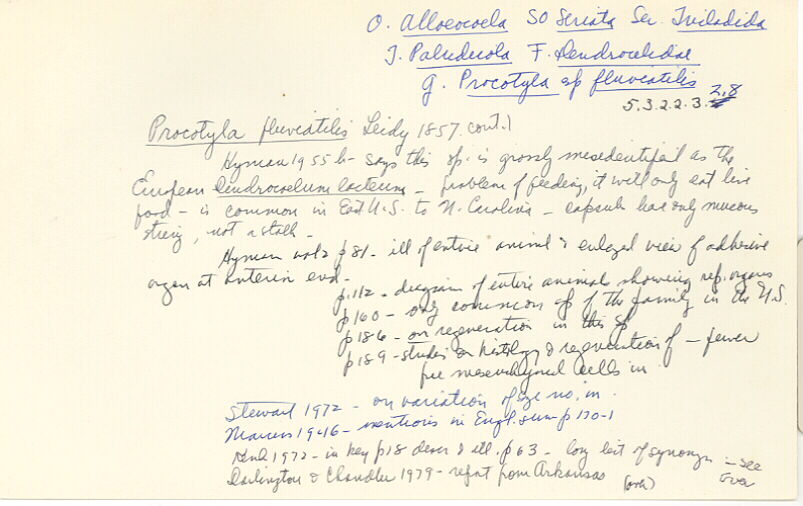 O. Alloeocoela SO Seriata Sec. Tricladida
T. Paludicola F. Dendrocoelidae
g. Procotyla sp fluviatilis
5.3.2.2.3. 2.8
Procotyla fluviatilis Leidy 1857 cont.)
Hyman 1955 b - says this sp. is grossly misidentified as the
European Dendrocoelum lacteum - problem of feeding, it will only eat live
food - is common in East U.S. to N. Carolina - capsule has only mucous
string, not a stalk -
Hyman vol 2 p 81 - ill of entire animal & enlarged view of adhesive
organ at anterior end -
p. 112 - diagram of entire animal showing rep. organs
p 160 - only common sp of the family in the U.S.
p 186 - on regeneration in this sp
p 189 - studies on histology & regeneration of - fewer
free mesenchymal cells in
Stewart 1972 - on variation of eye no. in
Marcus 1946 - mentions in Engl. sum p 170-1
Kenk 1972 - in key p 18 descr & ill. p 63 - long list of synonyms - see
Over
Darlington & Chandler 1979 - report from Arkansas (over)